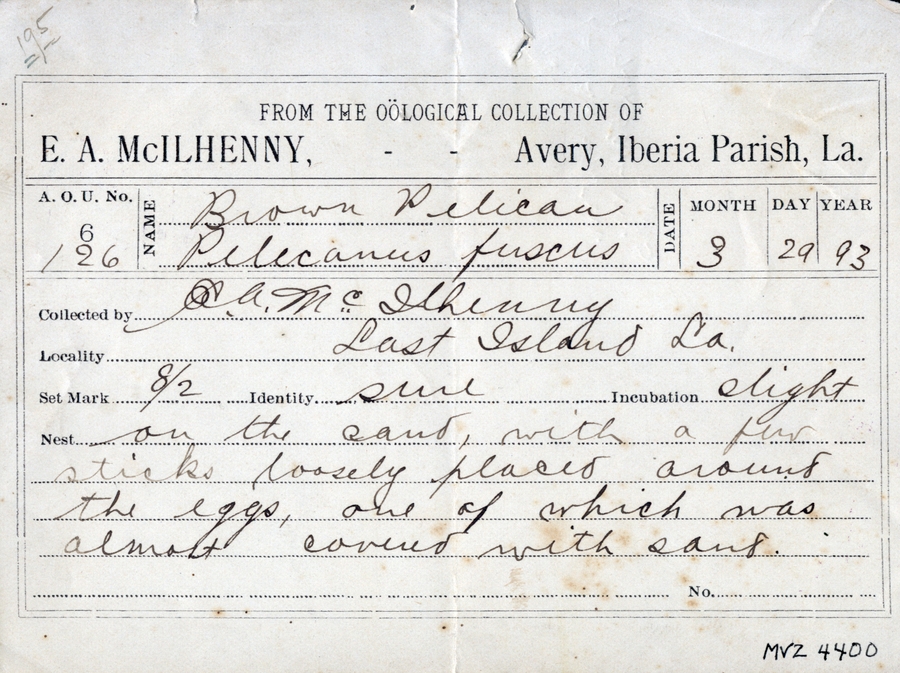 195
FROM THE OÖLOGICAL COLLECTION OF
E. A. McILHENNY, - - Avery, Iberia Parish, La.
A. O. U. No. NAME Brown Pelican DATE MONTH DAY YEAR
6
126 Pelecanus fuscus 3 29 93
Collected by E. A. Mc Ilhenny
Locality Last Island La.
Set Mark 8/2 Identity sure Incubation slight
Nest on the sand, with a few
sticks loosely placed around
the eggs, one of which was
almost covered with sand.
No.
MVZ 4400